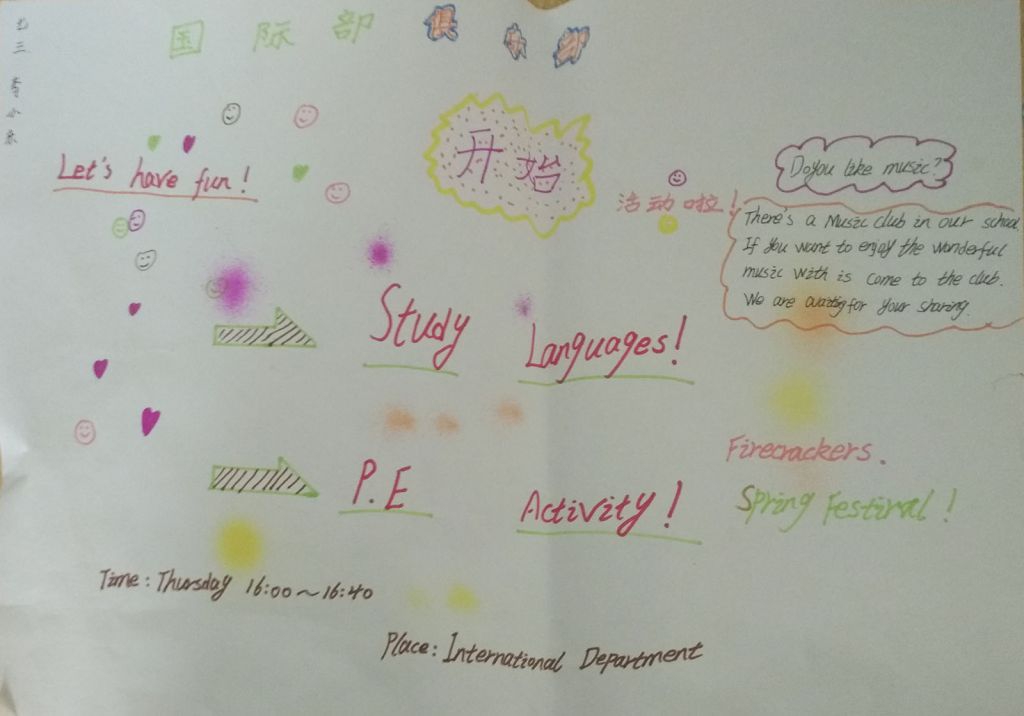 国际部 俱乐部
开始
活动啦！
Let's have fun!
Doyou like music?
There's a Music club in our school.
If you want to enjoy the wonderful
music with is come to the club.
We are waiting for your sharing.
Study Languages!
P.E Activity!
Firecrackers.
Spring Festival!
Time: Thursday 16:00~16:40
Place: International Department